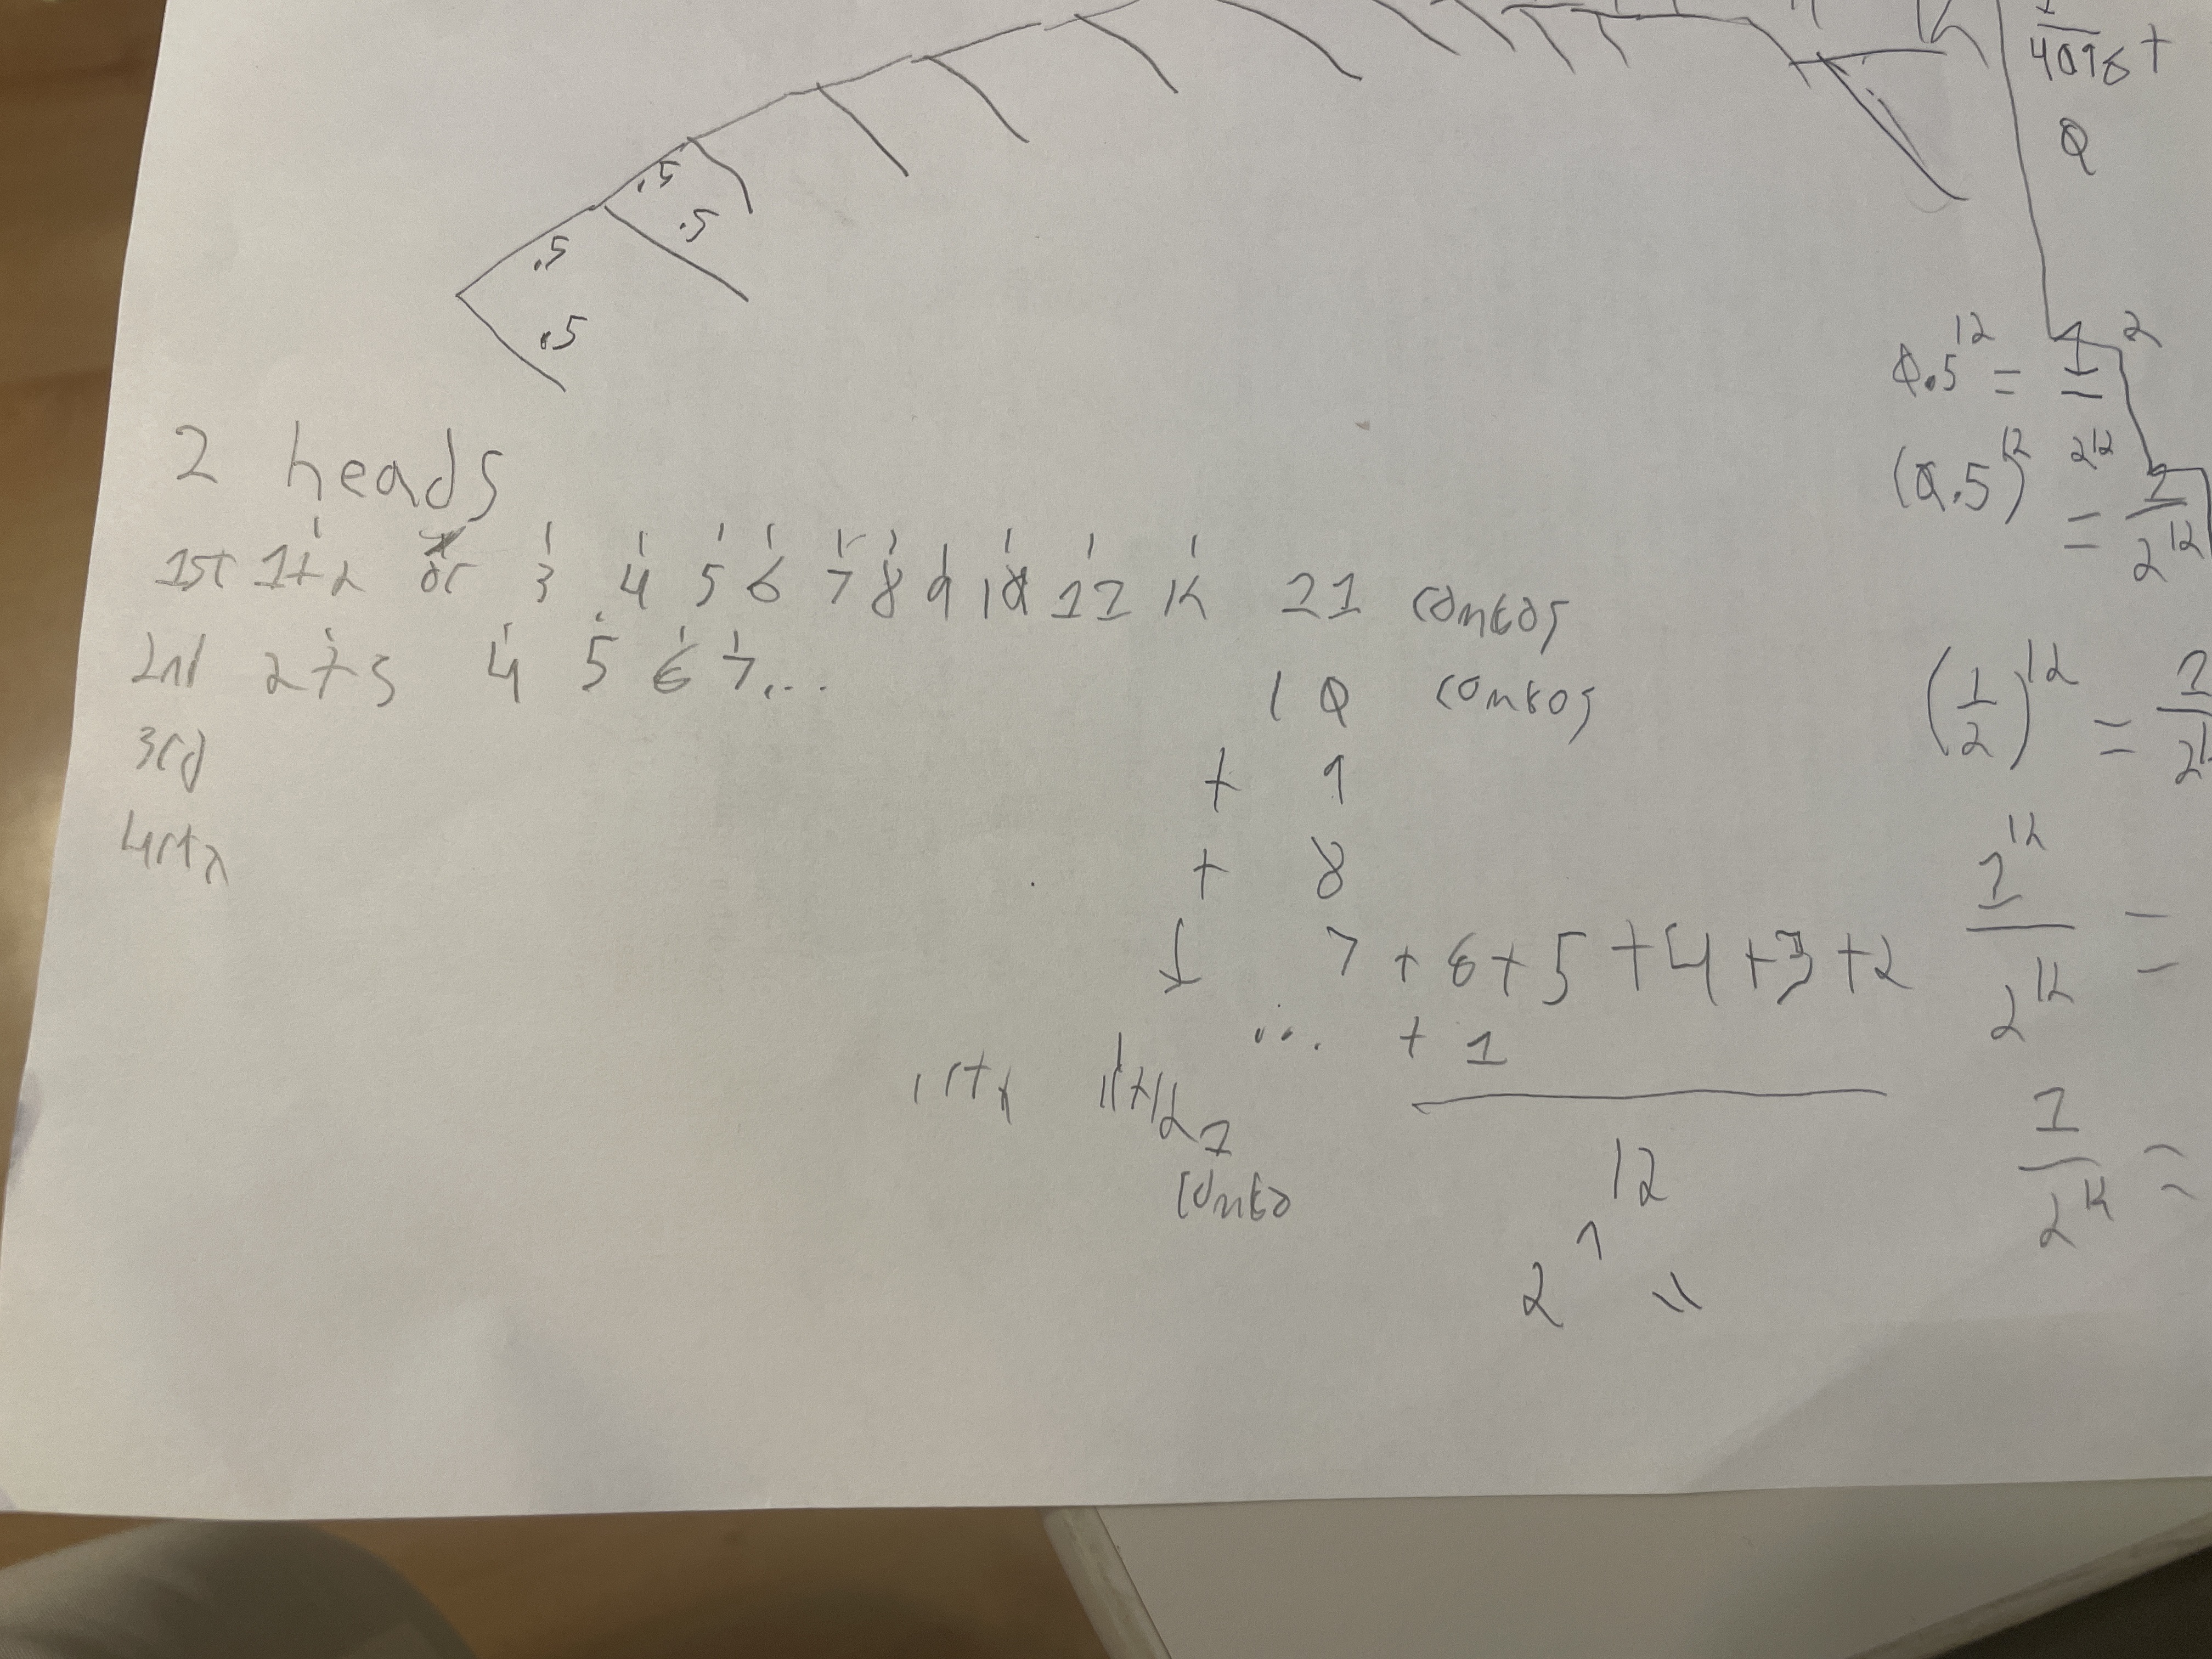 .5
.5
.5
.5
4096 +
0
2 heads
1st 1+2 or 3 4 5 6 7 8 9 10 11 12 11 combos
2nd 2+3 4 5 6 7...
10 combos
3rd
+ 9
4rth
+ 8
7 + 6 + 5 + 4 + 3 + 2
... + 1
11+12 1
combo
12
2 ^ =
0.5^12 = 1
2^12
(0.5)^12 = 1/2^12
(1/2)^12 =
1^12/2^12 =
1/2^12 =